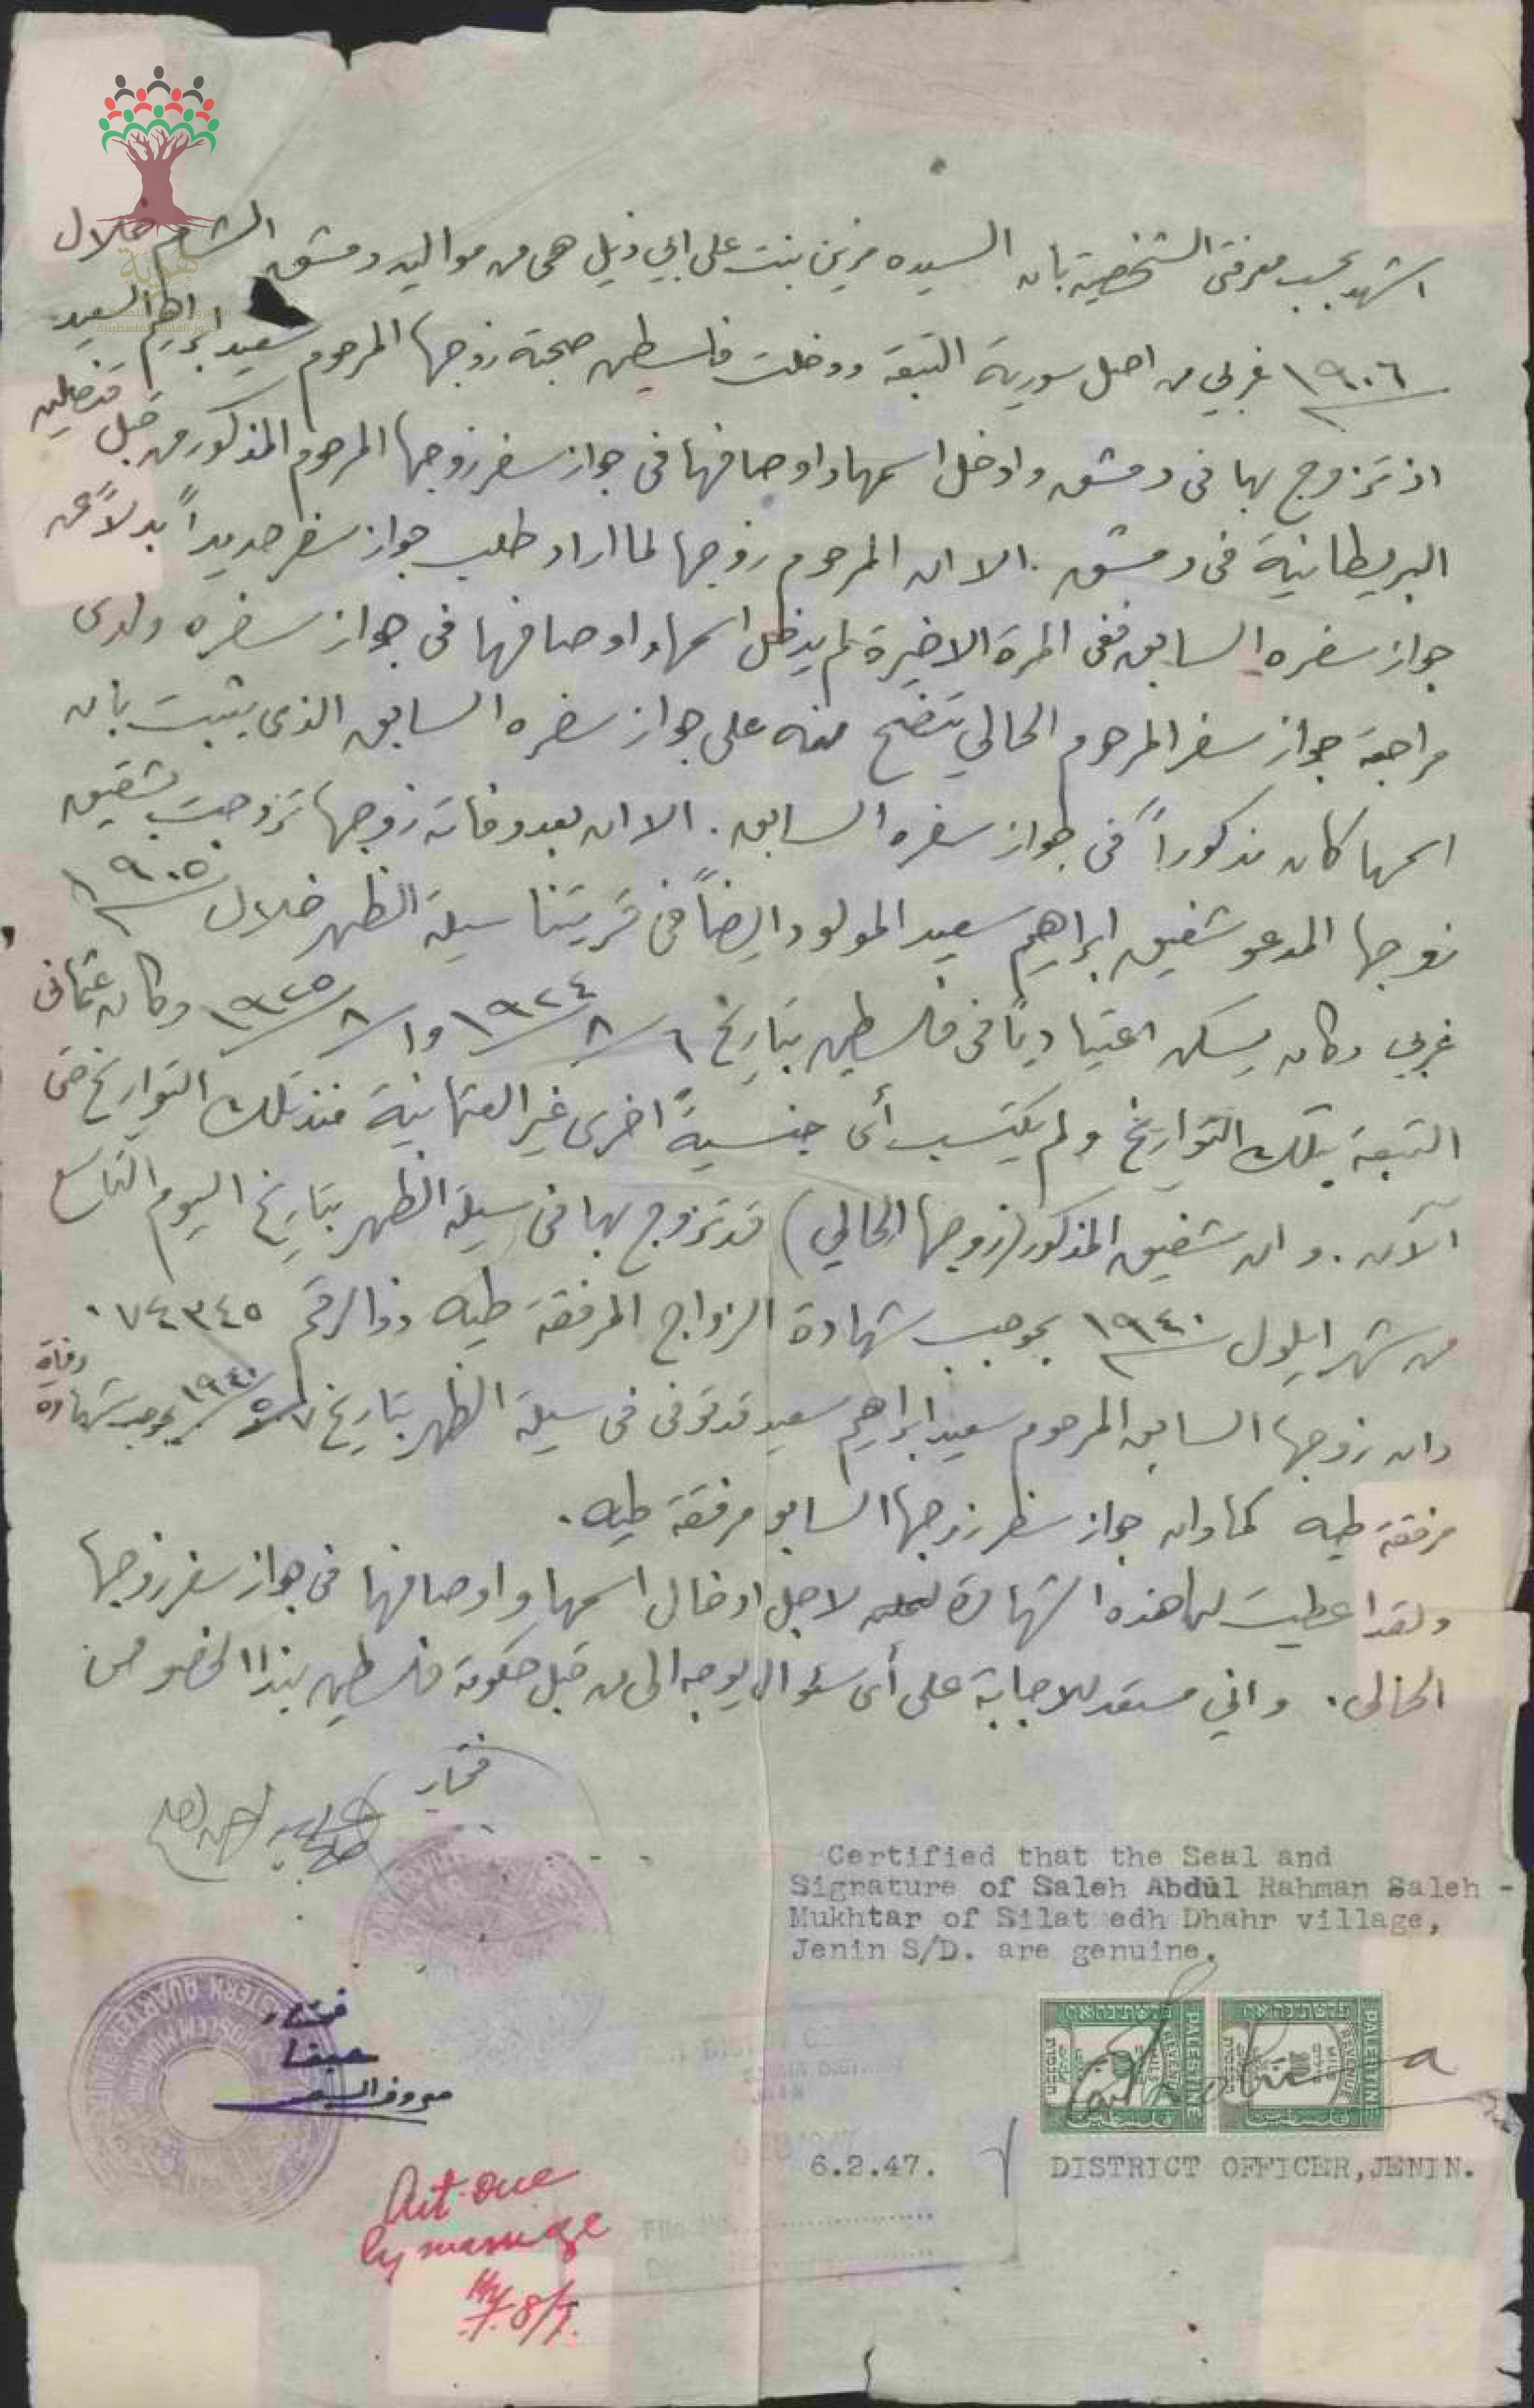 اشهد بحسب معرفتي الشخصية بان السيده مزين بنت علي ابي ذيل هي من مواليد دمشق الشام خلال
١٩٠٦ غربي من اصل سورية التبعة ودخلت فلسطين صحبة زوجها المرحوم سعيد ابراهيم السعيد
اذ تزوج بها في دمشق وادخل اسمها واوصافها في جواز سفر زوجها المرحوم المذكور من قبل قنصلين
البريطانية في دمشق . الا ان المرحوم زوجها لما اراد طلب جواز سفر جديداً بدلاً عن
جواز سفره السابق ففي المرة الاخيرة لم يدخل اسمها واوصافها في جواز سفره ولدى
مراجعة جواز سفر المرحوم الحالي يتضح منه على جواز سفره السابق الذي يثبت بان
اسمها كان مذكوراً في جواز سفره السابق . الا ان بعد وفات زوجها تزوجت بشقيق
زوجها المدعو شفيق ابراهيم سعيد المولود ايضاً في قريتنا سيلة الظهر خلال ١٩٠٥
غربي وكان يسكن اعتيادياً في فلسطين بتاريخ ٦/٨/١٩٢٤ و ١/٨/١٩٢٥ وكان عثماني
التبعة بتلك التواريخ ولم يكتسب أي جنسيةً اخرى غير العثمانية منذ تلك التواريخ حتى
الآن . وان شفيق المذكور (زوجها الحالي) قد تزوج بها في سيلة الظهر بتاريخ اليوم التاسع
من شهر ايلول ١٩٤٠ بموجب شهادة الزواج المرفقة طيه ذو الرقم ٧٤٣٤٥ .
وان زوجها السابق المرحوم سعيد ابراهيم سعيد قد توفي في سيلة الظهر بتاريخ ٧/٥/١٩٤٠ بموجب شهادة وفاة
مرفقة طيه كما وان جواز سفر زوجها السابق مرفقة طيه .
ولقد اعطيت لها هذه الشهادة لاجل ادخال اسمها واوصافها في جواز سفر زوجها
الحالي . واني مستعد للاجابة على أي سؤال يوجه الي من قبل حكومة فلسطين بهذا الخصوص
مختار
Certified that the Seal and
Signature of Saleh Abdul Rahman Saleh -
Mukhtar of Silat edh Dhahr village,
Jenin S/D. are genuine.
مختار
حيفا
EASTERN QUARTER
PALESTINE
PALESTINE
6.2.47.
DISTRICT OFFICER, JENIN.
Art. One
by marriage
8/7.
هوية